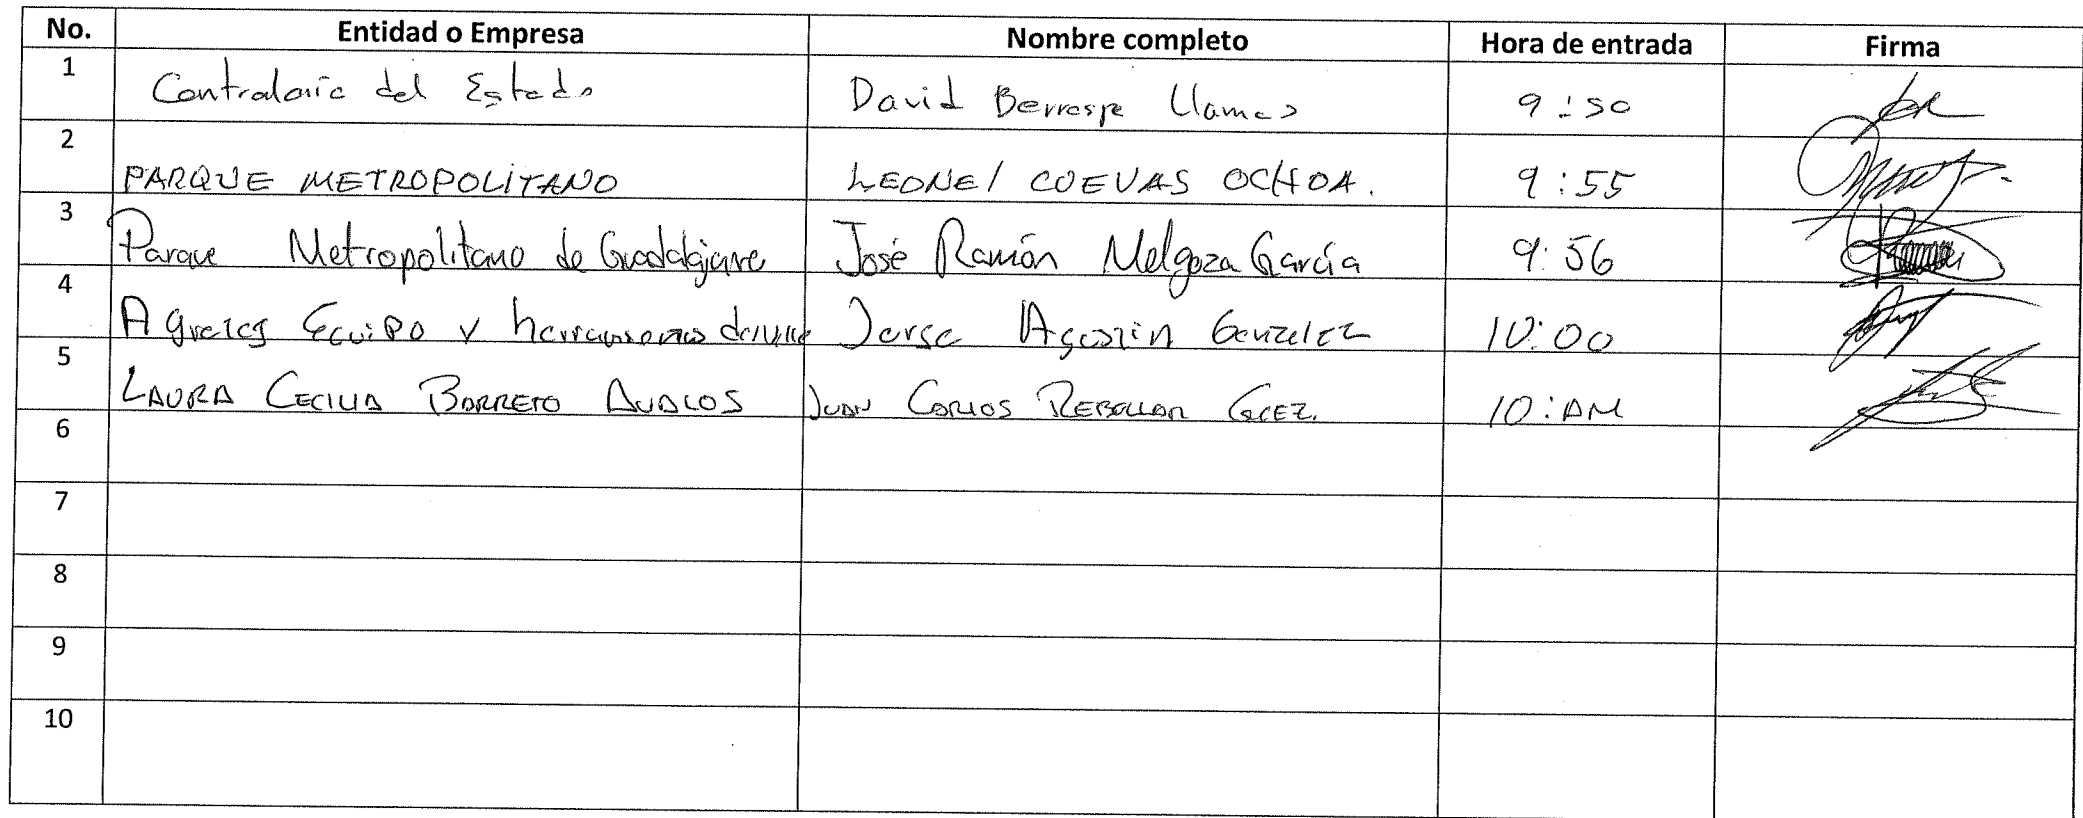 No. Entidad o Empresa Nombre completo Hora de entrada Firma
1 Contraloría del Estado David Berrospe Llamas 9:50
2 PARQUE METROPOLITANO LEONEl CUEVAS OCHOA. 9:55
3 Parque Metropolitano de Guadalajara José Ramón Melgoza García 9:56
4 Equipo y herramientas Jorge Agustin Gonzalez 10:00
5 LAURA CECILIA BARRETO AVALOS JUAN CARLOS REBOLLAR 10:AM
6
7
8
9
10